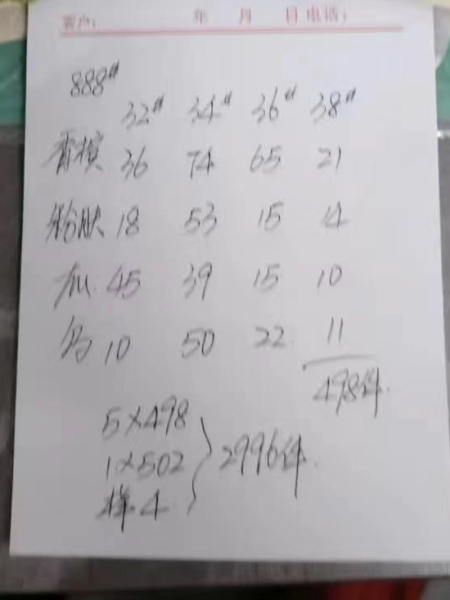 客户： 年 月 日 电话：
888#
32# 34# 36# 38#
香槟 36 74 65 21
粉肤 18 53 15 14
45 39 15 10
10 50 22 11
498件
5×498
1×502 2996件
样4